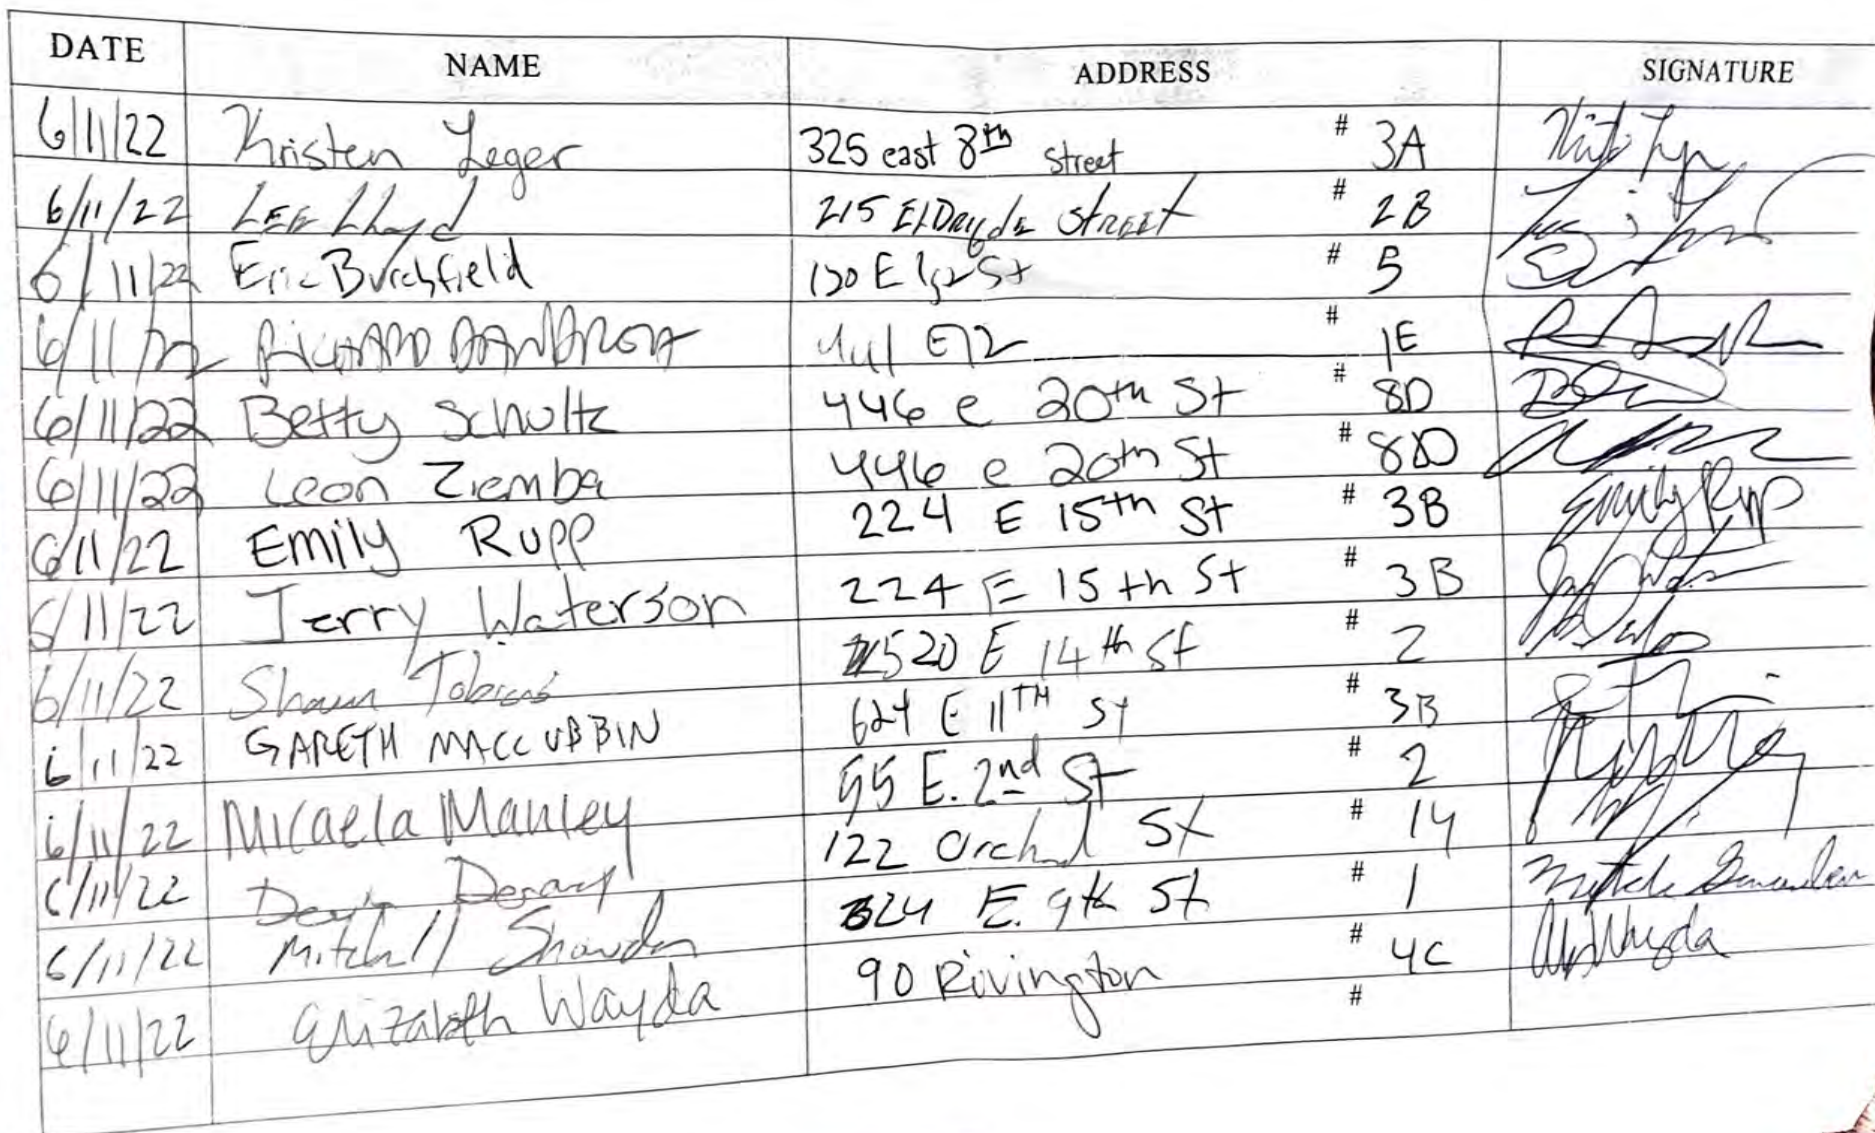 DATE NAME ADDRESS SIGNATURE
6/11/22 Kristen Leger 325 east 8th street # 3A
6/11/22 LEE Lloyd 215 ElDRIdgE StREEt # 2B
6/11/22 Eric Burchfield 130 E St # 5
6/11/22 RICHARD 441 E12 # 1E
6/11/22 Betty Schultz 446 e 20th St # 8D
6/11/22 Leon Ziemba 446 e 20th St # 8D
6/11/22 Emily Rupp 224 E 15th St # 3B Emily Rupp
6/11/22 Jerry Waterson 224 E 15th St # 3B
6/11/22 Shawn Tobias 520 E 14th St # 2
6/11/22 GARETH MACCUBBIN 624 E 11TH ST # 3B
6/11/22 Micaela Manley 55 E. 2nd St # 2
6/11/22 Devin 122 Orchard St # 14
6/11/22 Mitchell 324 E. 9th St # 1
6/11/22 Elizabeth Wayda 90 Rivington # 4C Wayda
#